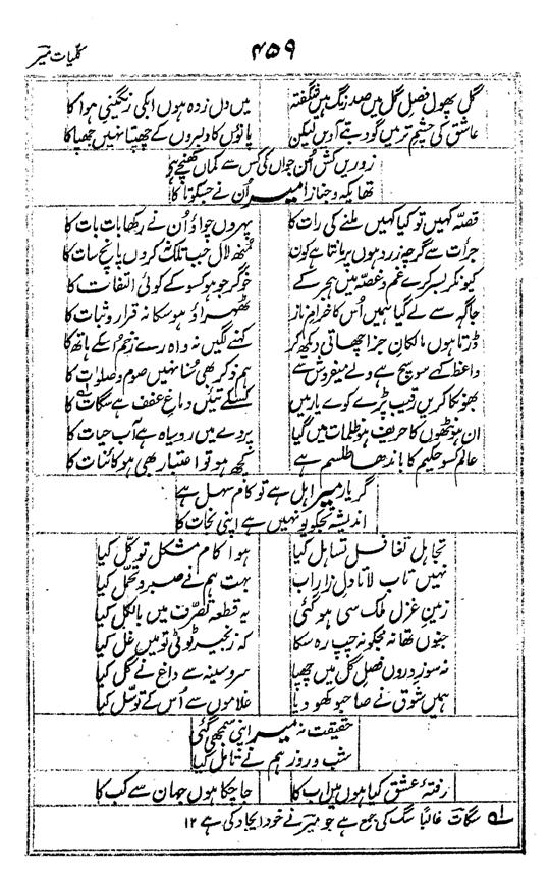 کلیات میر
۴۵۹
گل پھول فصل گل میں صد رنگ ہیں شگفتہ میں دل زدہ ہوں ابکی رنگینی ہوا کا
عاشق کی چشم تر میں گو دبتے آویں لیکن پاؤں کا دلبروں کے چھپتا نہیں چھپاکا
زوریں کش اُس جواں کی کس سے کماں کھنچے ہے
تھا یکہ و جنازا میر اُن نے جسکو تاکا
قصہ کہیں تو کیا کہیں ملنے کی رات کا پہروں چواؤ اُن نے رکھا بات بات کا
جرأت سے گرچہ زرد ہوں پر مانتا ہے کون منھ لال جب تلک نہ کروں پانچ سات کا
کیونکر بسر کرے غم و غصہ میں ہجر کے خوگر جو ہو کسو کے کوئی التفات کا
جاگہہ سے لے گیا ہمیں اُس کا خرام ناز ٹھہراؤ ہو سکا نہ قرار و ثبات کا
ڈرتا ہوں مالکان جزا چھاتی دیکھ کر کہنے لگیں نہ واہ رے زخم اُسکے ہاتھ کا
واعظ کہے سو سچ ہے ولے میفروش سے ہم ذکر بھی سُنا نہیں صوم و صلوٰت کا
بھونکا کریں رقیب پڑے کوے یار میں کسکے تئیں دماغ عفف ہے سگات کا
ان ہونٹھوں کا حریف ہو ظلمات میں گیا پردے میں رو سیاہ ہے آب حیات کا
عالم کسو حکیم کا باندھا طلسم ہے کچھ ہو تو اعتبار بھی ہو کائنات کا
گر یار میر اہل ہے تو کام سہل ہے
اندیشہ تجکو یونہیں ہے اپنی نجات کا
تجاہل تغافل تساہل کیا ہوا کام مشکل توکل کیا
نہیں تاب لاتا دل زار اب بہت ہم نے صبر و تحمل کیا
زمین غزل ملک سی ہو گئی یہ قطعہ تصرف میں بالکل کیا
جنوں تھا نہ مجکو نہ چپ رہ سکا کہ زنجیر ٹوٹی تو میں غل کیا
نہ سوز دروں فصل گل میں چھپا سر و سینہ سے داغ نے گل کیا
ہمیں شوق نے صاحبو کھو دیا غلاموں سے اُس کے توسل کیا
حقیقت نہ میر اپنی سمجھی گئی
شب و روز ہم نے تامل کیا
رفتۂ عشق کیا ہوں میں اب کا جا چکا ہوں جہان سے کب کا
لہ سگات غالباً سگ کی جمع ہے جو میر نے خود ایجاد کی ہے ۱۲